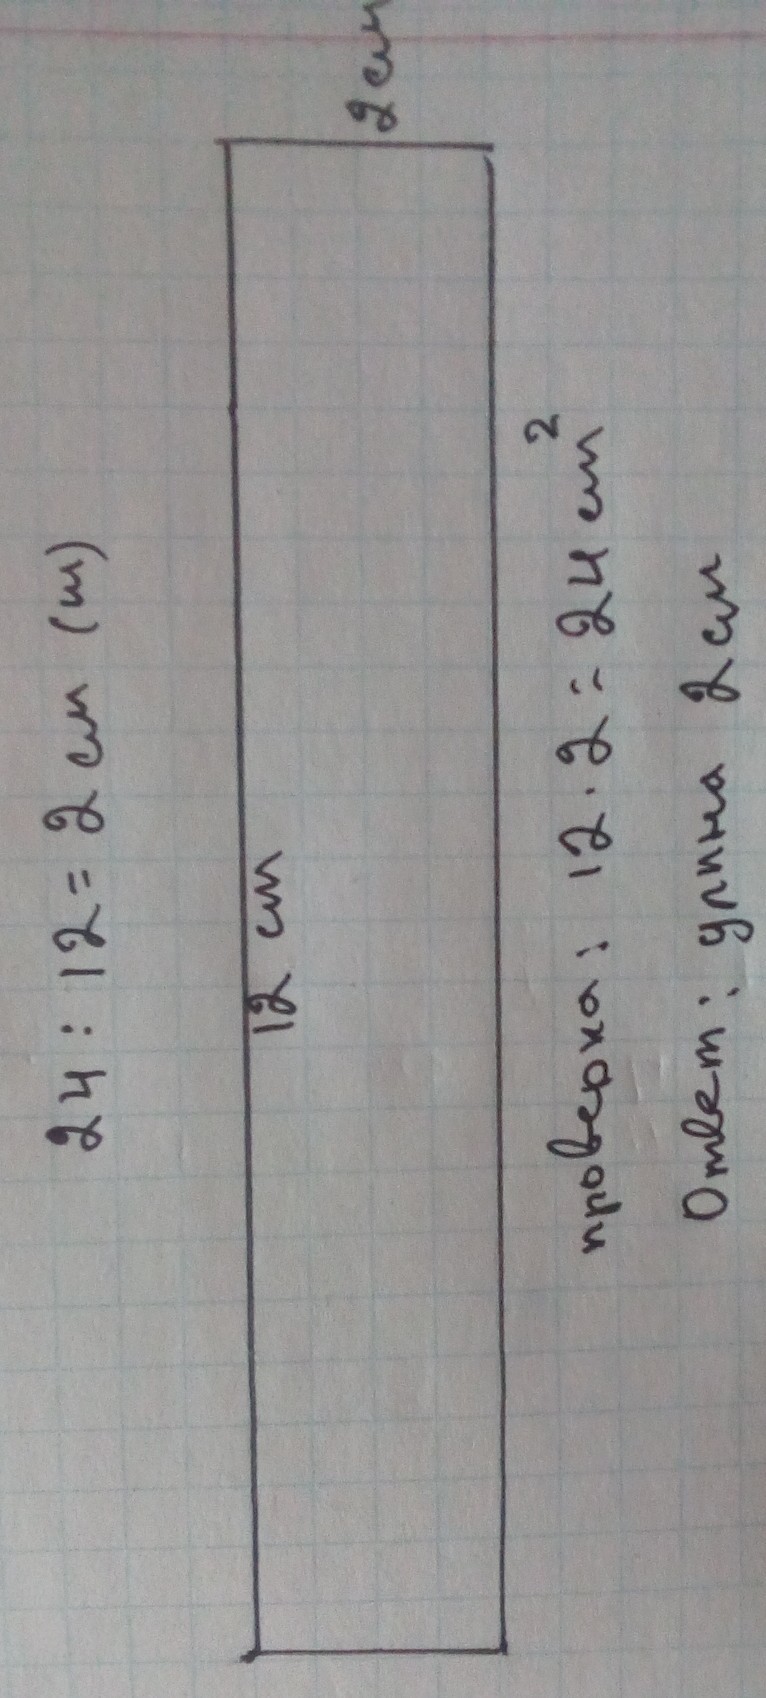 24 : 12 = 2 см (ш)
2 см
12 см
проверка: 12 · 2 = 24 см²
Ответ: длина 2 см